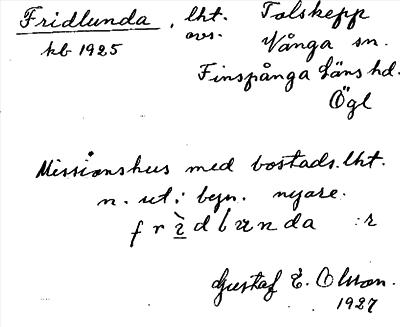 Fridlunda, lht. Tolskepp
kb 1925 avs. Vånga sn.
Finspånga läns hd.
Ögl
Missionshus med bostads.lht.
n. utt: beyn. nyare.
frìdlunda :r
Gustaf E. Olsson.
1927